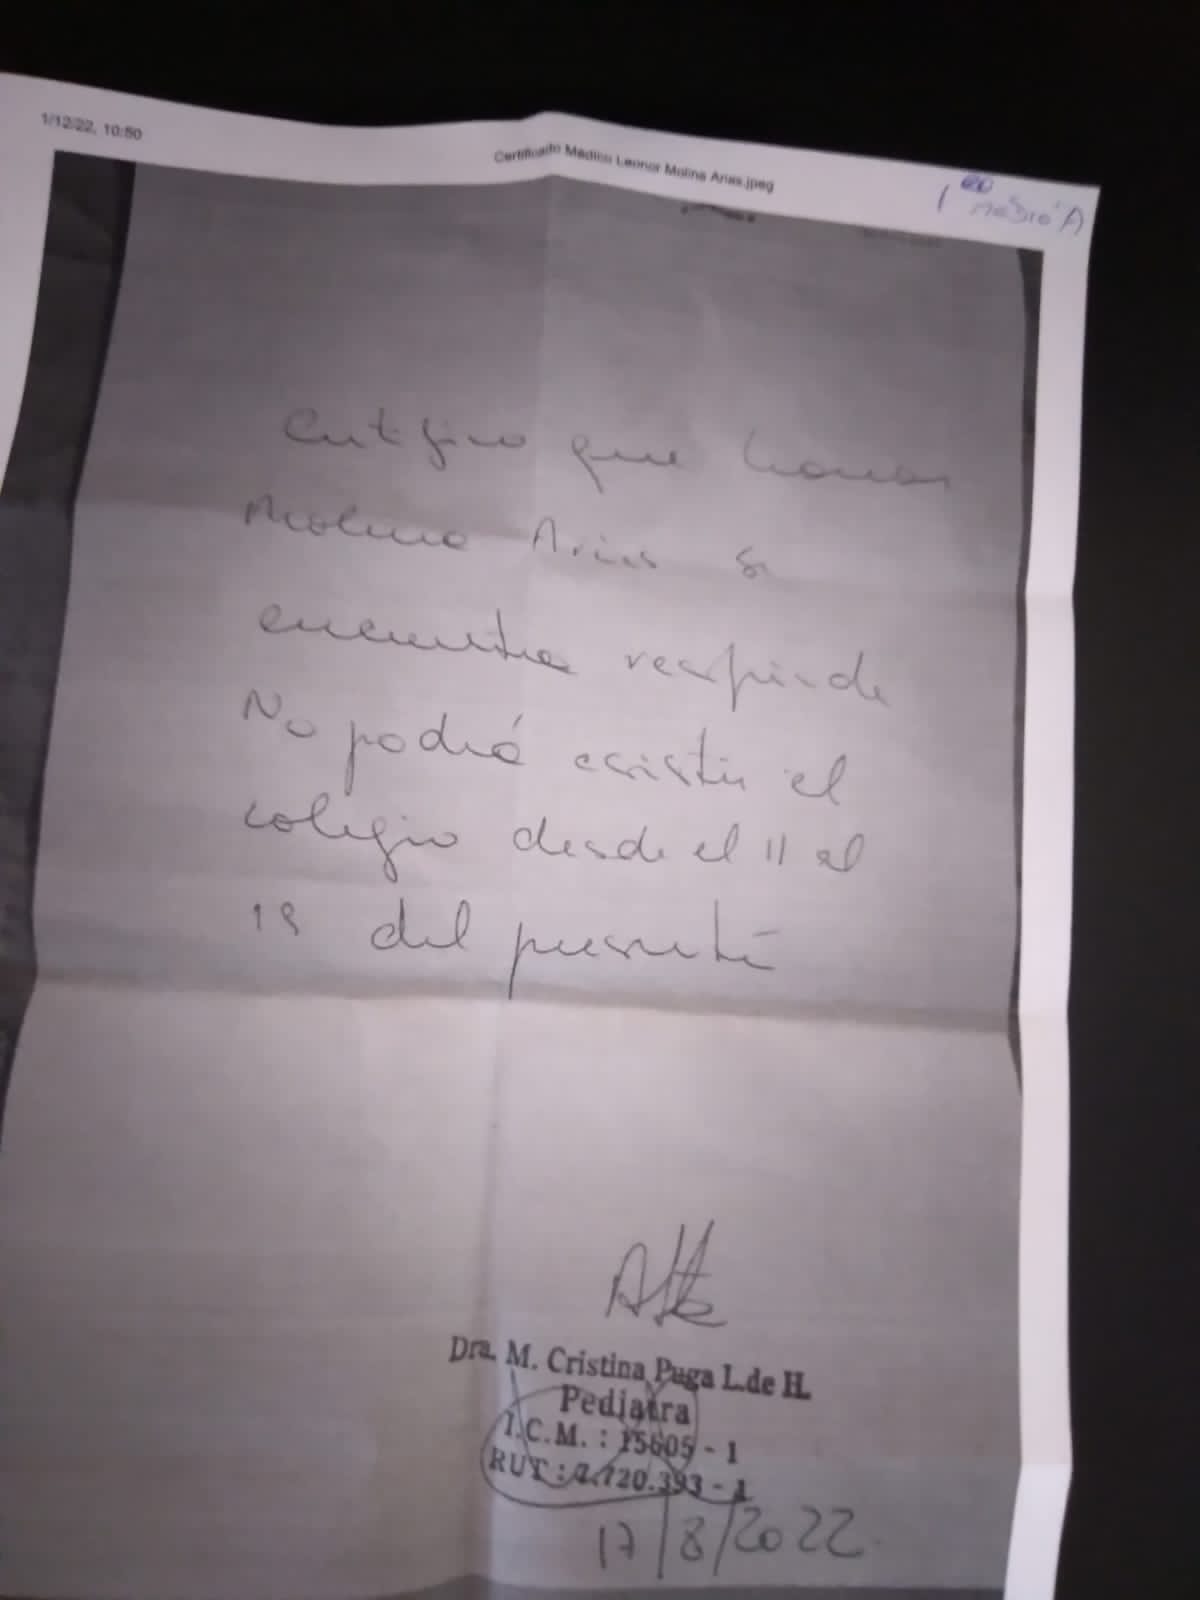 1/12/22, 10:50
Certificado Médico Leonor Molina Arias.jpeg
1 Medio A
Certifico que Leonor
Molina Arias se
encuentra resfriada
No podrá asistir al
colegio desde el 11 al
19 del presente
Dra. M. Cristina Puga L.de H.
Pediatra
I.C.M. : 15605 - 1
RUT : 4.720.393 - 1
17/8/2022